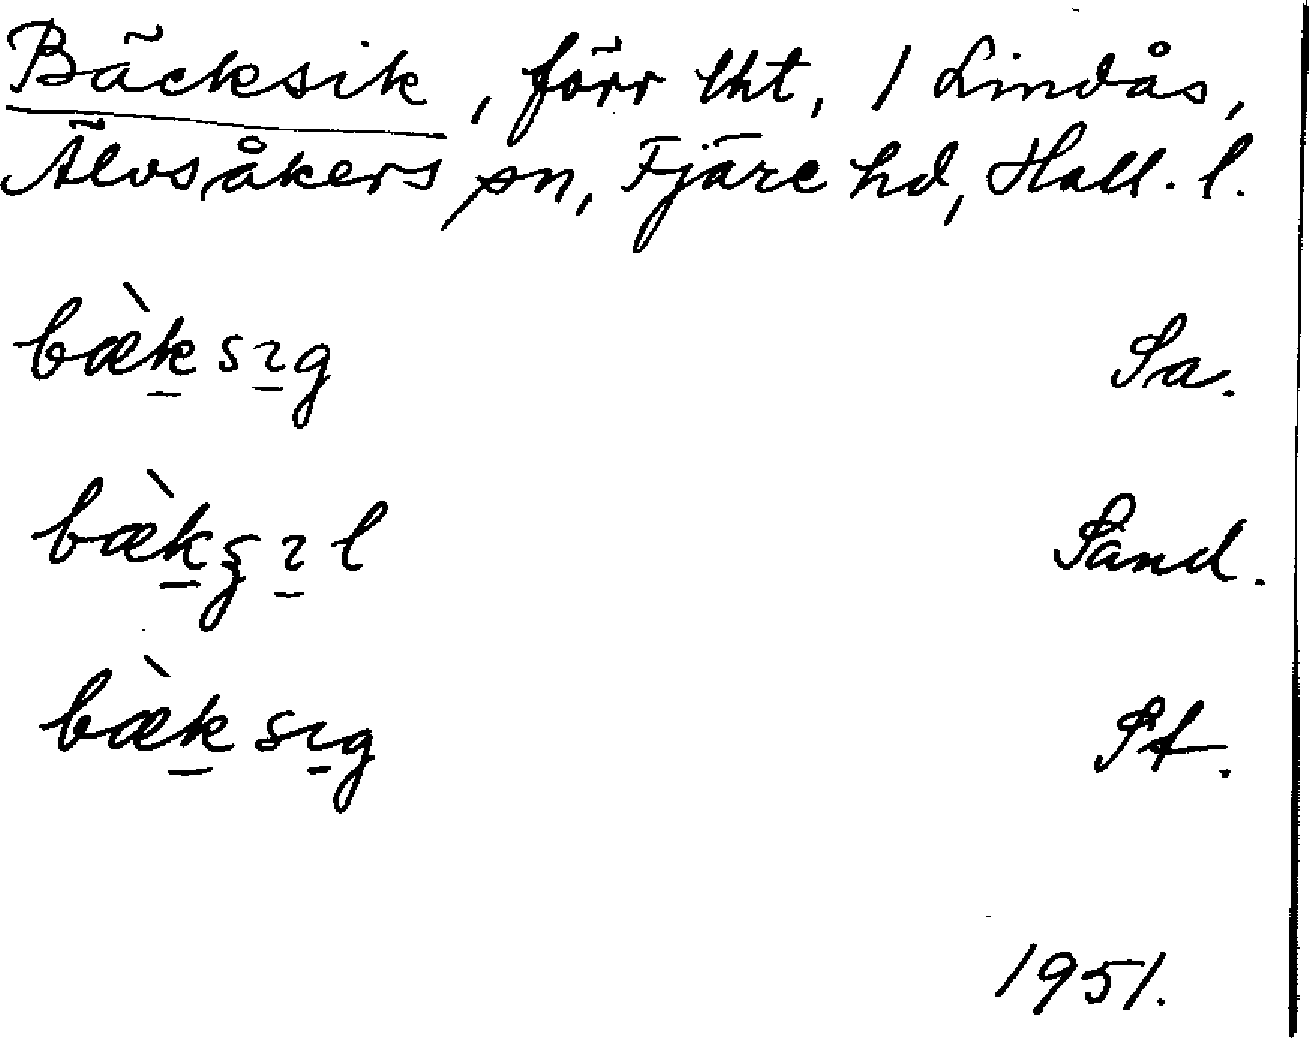 Bäcksik, förr lht, 1 Lindås,
Älvsåkers sn, Fjäre hd, Hall. l.
bæ̀k̠sı̠g Sa.
bæ̀k̠ʂı̠l Sand.
bæ̀k̠sı̠g St.
1951.